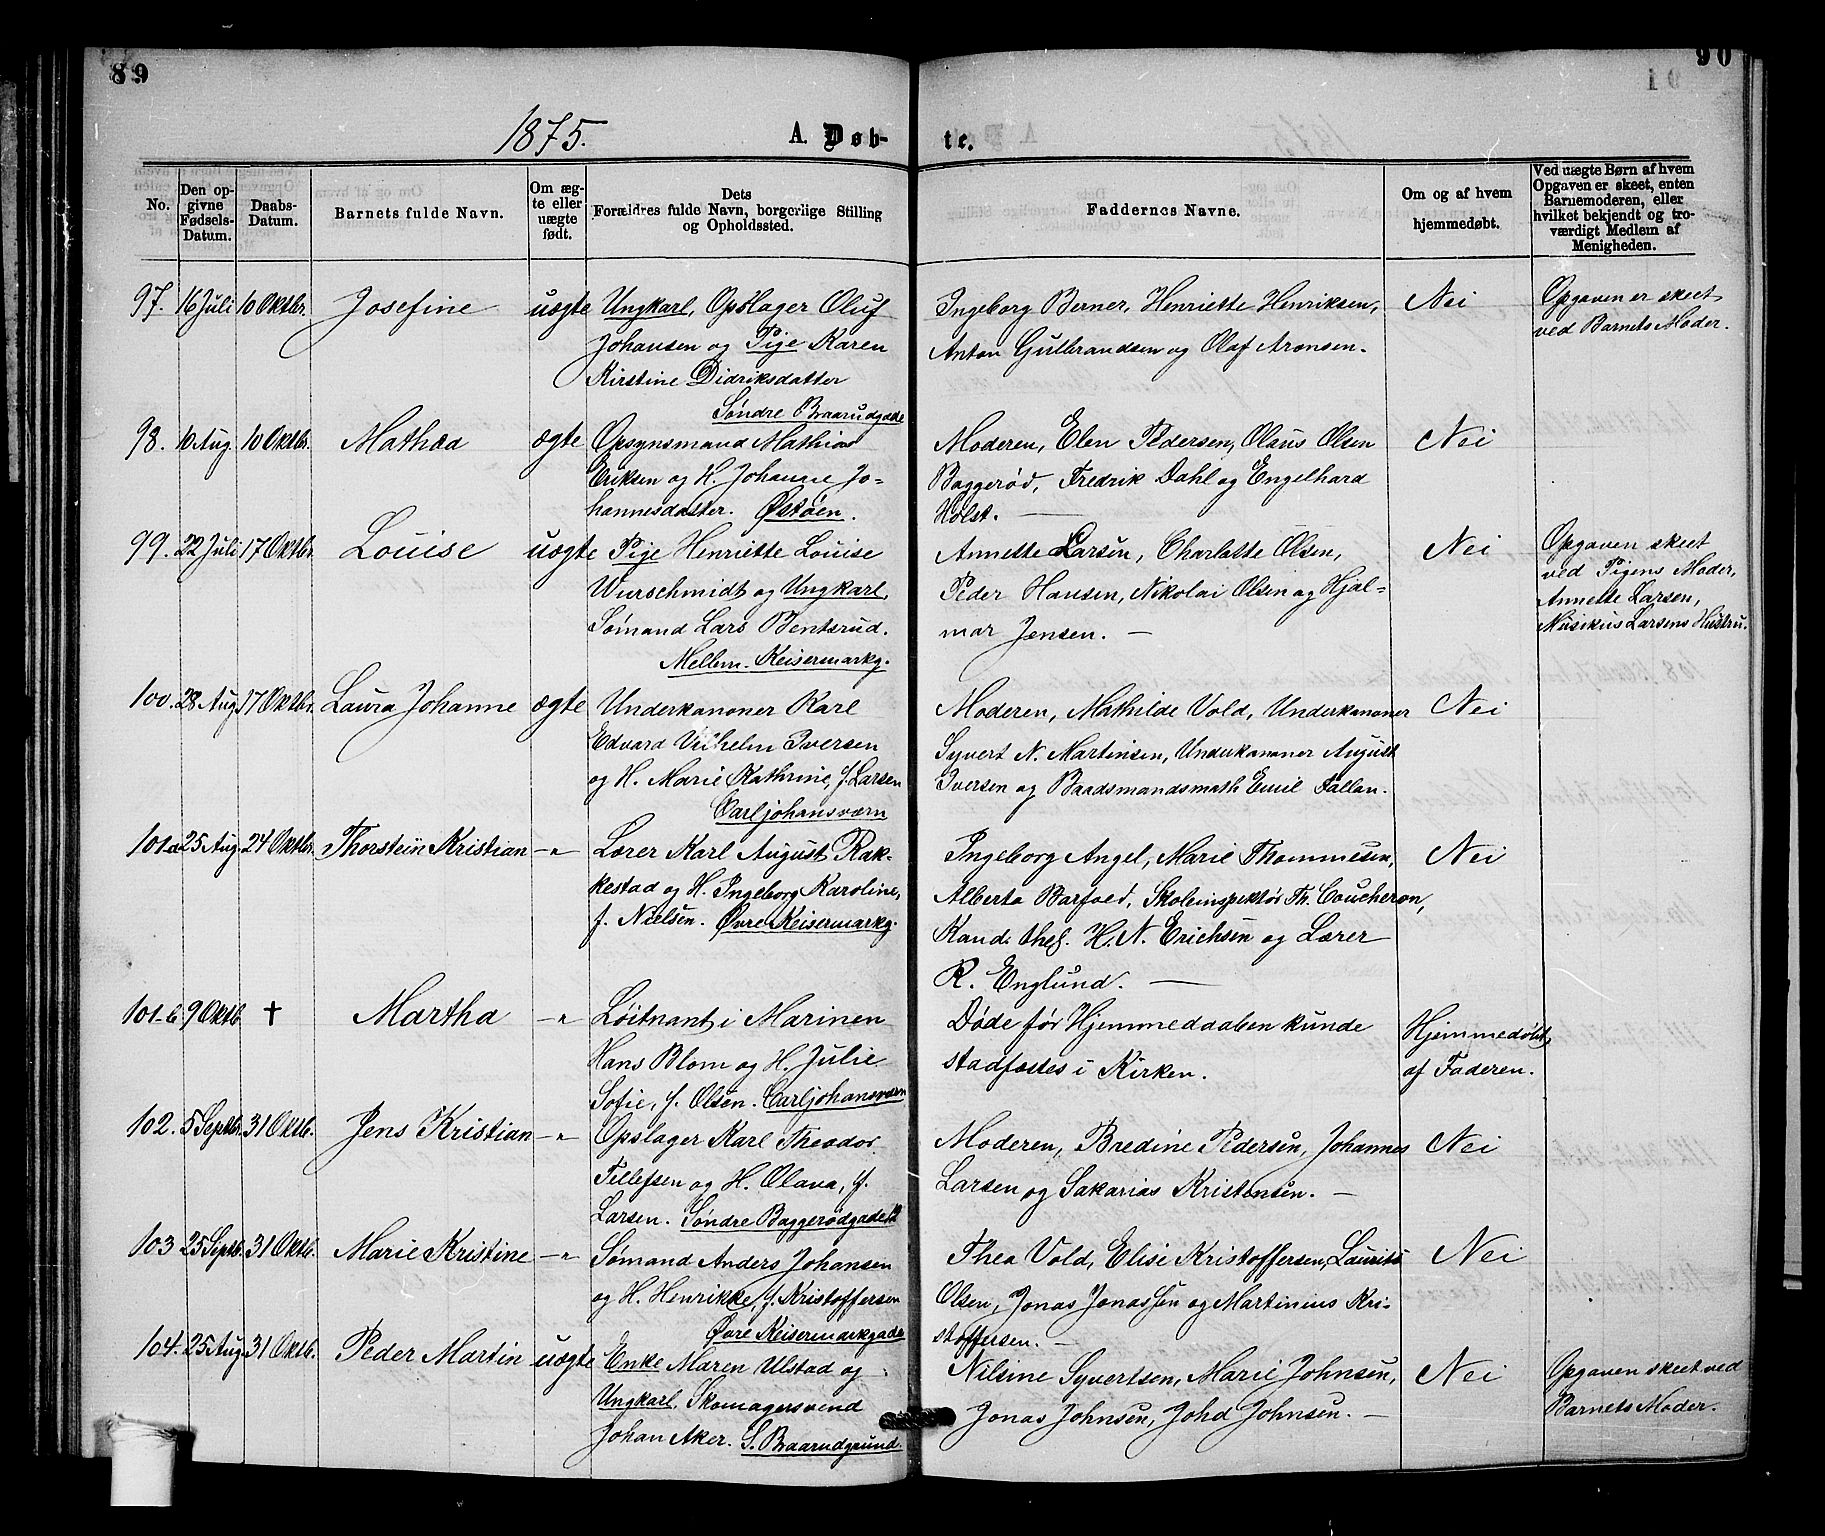 89
90
1875.
A. Døb-
te.
No.
Den op-
givne
Fødsels-
Datum.
Daabs-
Datum.
Barnets fulde Navn.
Om æg-
te eller
uægte
født.
Dets
Forældres fulde Navn, borgerlige Stilling
og Opholdssted.
Faddernes Navne.
Om og af hvem
hjemmedøbt.
Ved uægte Børn af hvem
Opgaven er skeet, enten
Barnemoderen, eller
hvilket bekjendt og tro-
værdigt Medlem af
Menigheden.
97. 16 Juli 10 Oktbr. Josefine uægte Ungkarl, Opslager Oluf
Johansen og Pige Karen
Kirstine Didriksdatter
Søndre Braarudgade
Ingeborg Berner, Henriette Henriksen,
Anton Gulbrandsen og Olaf Aronsen.
Nei
Opgaven er skeet
ved Barnets Moder.
98. 10 Aug. 10 Oktbr. Mathea ægte Opsynsmand Mathias
Eriksen og H. Johanne Jo-
hannesdatter. Østøen.
Moderen, Elen Pedersen, Olaus Olsen
Baggerød, Fredrik Dahl og Engelhard
Holst. —
Nei
99. 22 Juli 17 Oktbr. Louise uægte Pige Henriette Louise
Wurschmidt og Ungkarl,
Sømand Lars Bentsrud.
Mellem-Keisermarkg.
Annette Larsen, Charlotte Olsen,
Peder Hansen, Nikolai Olsen og Hjal-
mar Jensen. —
Nei
Opgaven skeet
ved Pigens Moder,
Annette Larsen,
Musikus Larsens Hustru.
100. 28 Aug 17 Oktbr. Laura Johanne ægte Underkanoner Karl
Edvard Vilhelm Iversen
og H. Marie Kathrine, f. Larsen
Carljohansværn
Moderen, Mathilde Vold, Underkanoner
Syvert N. Martinsen, Underkanoner August
Iversen og Baadsmandsmath Emil Fallan.
Nei
101a 25 Aug. 24 Oktbr. Thorstein Kristian —„— Lærer Karl August Rak-
kestad og H. Ingeborg Karoline,
f. Nielsen. Øvre Keisermarkg.
Ingeborg Angel, Marie Thommesen,
Alberta Barfoed, Skoleinspektør Th. Coucheron,
Kand. theol. H. N. Erichsen og Lærer
R. Englund. —
Nei
101-b 9 Oktb. † Martha —„— Løitnant i Marinen
Hans Blom og H. Julie
Sofie, f. Olsen. Carljohansværn
Døde før Hjemmedaaben kunde
stadfæstes i Kirken.
Hjemmedøbt
af Faderen.
102. 5 Septbr. 31 Oktb. Jens Kristian —„— Opslager Karl Theodor
Tellefsen og H. Olava, f.
Larsen. Søndre Baggerødgade
Moderen, Bredine Pedersen, Johannes
Larsen og Sakarias Kristensen. —
Nei
103 25 Septb. 31 Oktb. Marie Kristine —„— Sømand Anders Johansen
og H. Henrikke, f. Kristoffersen
Øvre Keisermarkgade
Thea Vold, Elise Kristoffersen, Laurits
Olsen, Jonas Jonassen og Martinius Kri-
stoffersen. —
Nei
104. 25 Aug. 31 Oktb. Peder Martin uægte Enke Maren Ulstad og
Ungkarl, Skomagersvend
Johan Aker. S. Baarudgrund.
Nilsine Syvertsen, Marie Johnsen,
Jonas Johnsen, Johd Johnsen. —
Nei
Opgaven skeet ved
Barnets Moder.